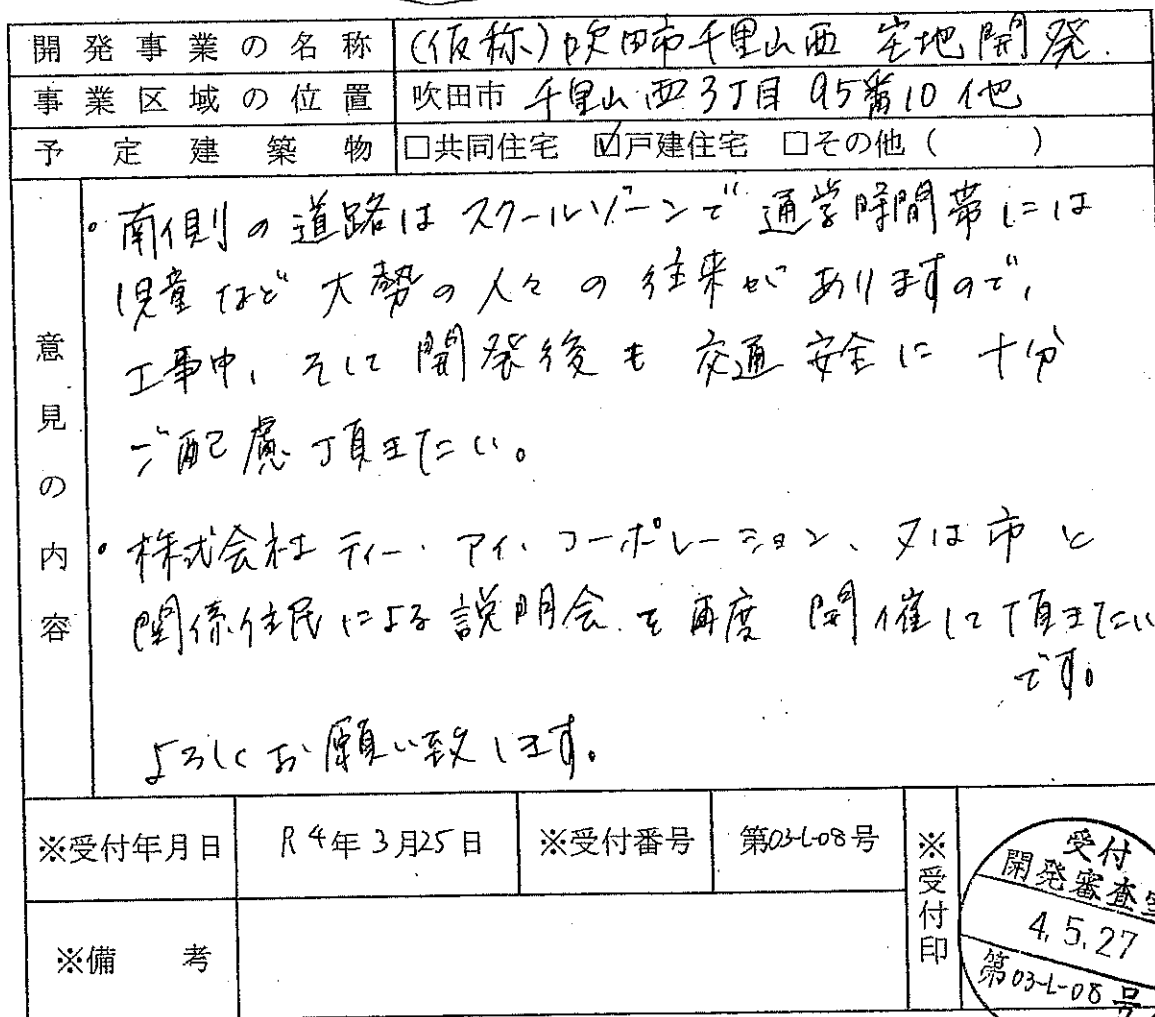 開発事業の名称 (仮称)吹田市千里山西 宅地開発.
事業区域の位置 吹田市 千里山西3丁目95番10他
予定建築物 □共同住宅 ☑戸建住宅 □その他( )
意見の内容
・南側の道路はスクールゾーンで通学時間帯には
児童など大勢の人々の往来がありますので、
工事中、そして開発後も交通安全に十分
ご配慮頂きたい。
・株式会社ティー・アイ・コーポレーション、又は市と
関係住民による説明会を再度開催して頂きたい
です。
よろしくお願い致します。
※受付年月日 R4年3月25日 ※受付番号 第03-L-08号 ※受付印
※備考
受付
開発審査室
4.5.27
第03-L-08号